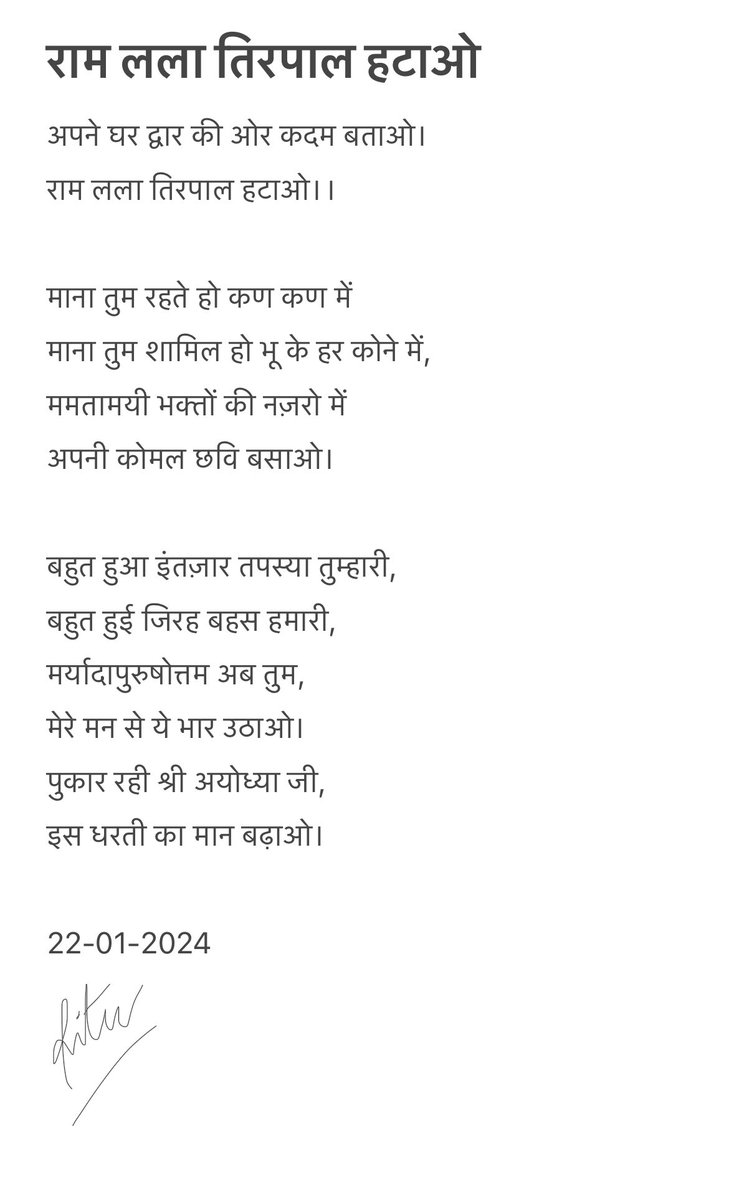 राम लला तिरपाल हटाओ
अपने घर द्वार की ओर कदम बताओ।
राम लला तिरपाल हटाओ।।
माना तुम रहते हो कण कण में
माना तुम शामिल हो भू के हर कोने में,
ममतामयी भक्तों की नज़रो में
अपनी कोमल छवि बसाओ।
बहुत हुआ इंतज़ार तपस्या तुम्हारी,
बहुत हुई जिरह बहस हमारी,
मर्यादापुरुषोत्तम अब तुम,
मेरे मन से ये भार उठाओ।
पुकार रही श्री अयोध्या जी,
इस धरती का मान बढ़ाओ।
22-01-2024
Ritu